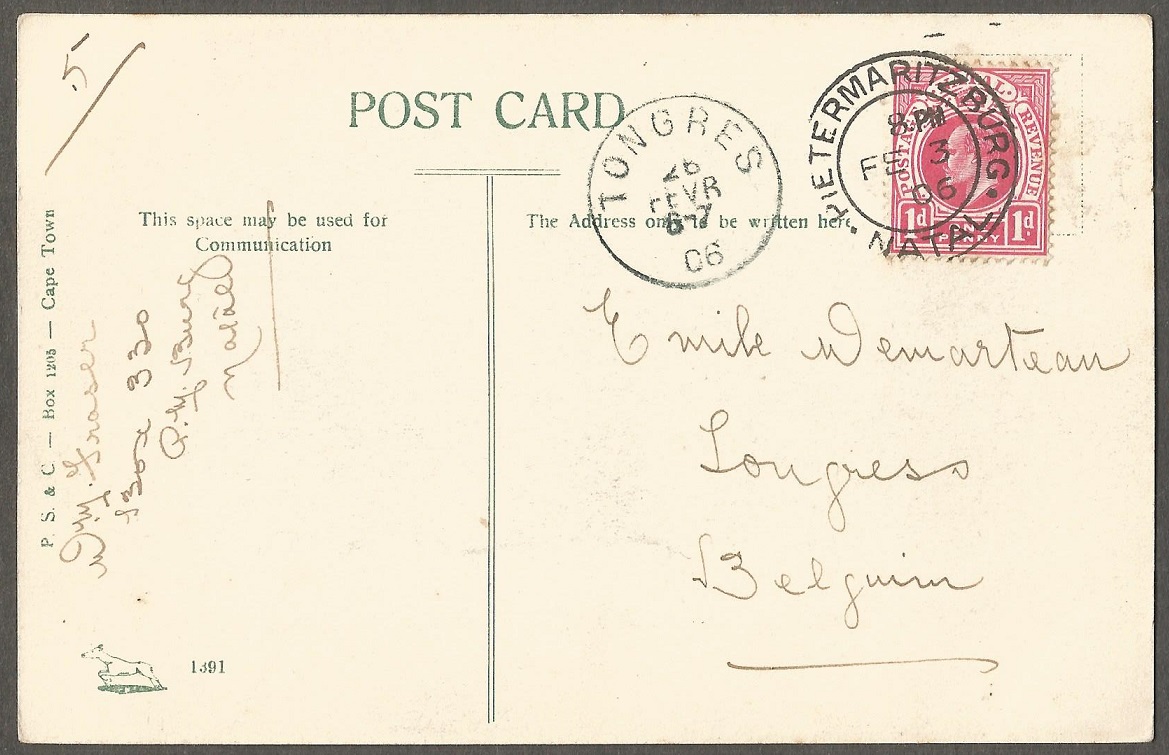 5
POST CARD
This space may be used for
Communication
The Address only to be written here.
TONGRES
26
FEVR
6-7
06
PIETERMARITZBURG.
NATAL
8 PM
FE 3
06
NATAL.
POSTAGE REVENUE
1d PENNY 1d
P. S. & C. — Box 1205 — Cape Town
Fraser
Box 330
P. M. Burg
Natal
Emile Demarteau
Tongress
Belguim
1391